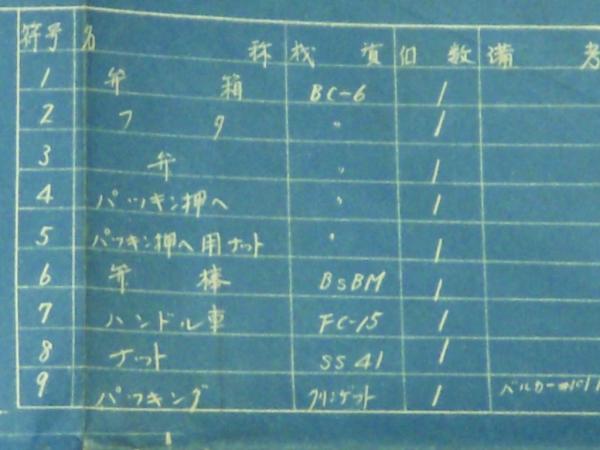 符号 名 称 材 質 個 数 備 考
1 弁 箱 BC-6 1
2 フ タ 〃 1
3 弁 〃 1
4 パッキン押へ 〃 1
5 パッキン押へ用ナット 〃 1
6 弁 棒 BsBM 1
7 ハンドル車 FC-15 1
8 ナット SS 41 1
9 パッキング クリンゲリット 1 バルカー